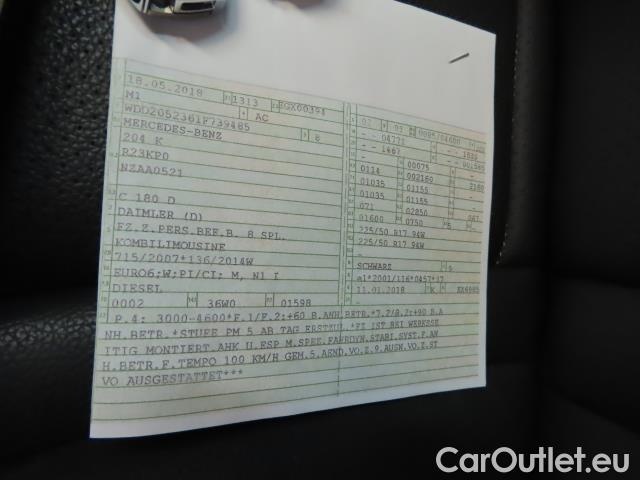 18.05.2018 1313 ZGX00394
M1 AC
WDD2052361F739485 8
MERCEDES-BENZ
204 K
R23KP0
NZAA0521
C 180 D
DAIMLER (D)
FZ.Z.PERS.BEF.B. 8 SPL.
KOMBILIMOUSINE
715/2007*136/2014W
EURO6;W;PI/CI: M, N1 I
DIESEL
0002 36W0 01598
04771
1467
0114 00075
01035 002160 2180
01035 01155
071 01155
01600 02850 067
0750
225/50 R17 94W
225/50 R17 94W
SCHWARZ
e1*2001/116*0457*17
11.01.2018 K
P.4: 3000-4600*F.1/F.2:+60 B.ANH.BETR.*7.2/8.2:+90 B.A
NH.BETR.*STUFE PM 5 AB TAG ERSTZUL.*FZ IST BEI WERKSSE
ITIG MONTIERT.AHK U.ESP M.SPEZ.FAHRDYN.STABI.SYST.F.AN
H.BETR.F.TEMPO 100 KM/H GEM.5.AEND.VO.Z.9.AUSN.VO.Z.ST
VO AUSGESTATTET***
CarOutlet.eu